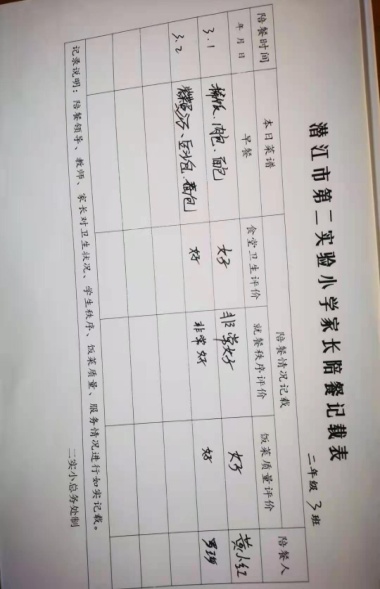 潜江市第二实验小学家长陪餐记载表
二年级 3 班
陪餐时间 本日菜谱 陪餐情况记载 陪餐人
年 月 日 早餐 食堂卫生评价 就餐秩序评价 饭菜质量评价
3.1 稀饭、肉包、面包 好 非常好 好 黄小红
3.2 豆沙包、 好 非常好 好
记录说明：陪餐领导、教师、家长对卫生状况、学生秩序、饭菜质量、服务情况进行如实记载。
二实小总务处制